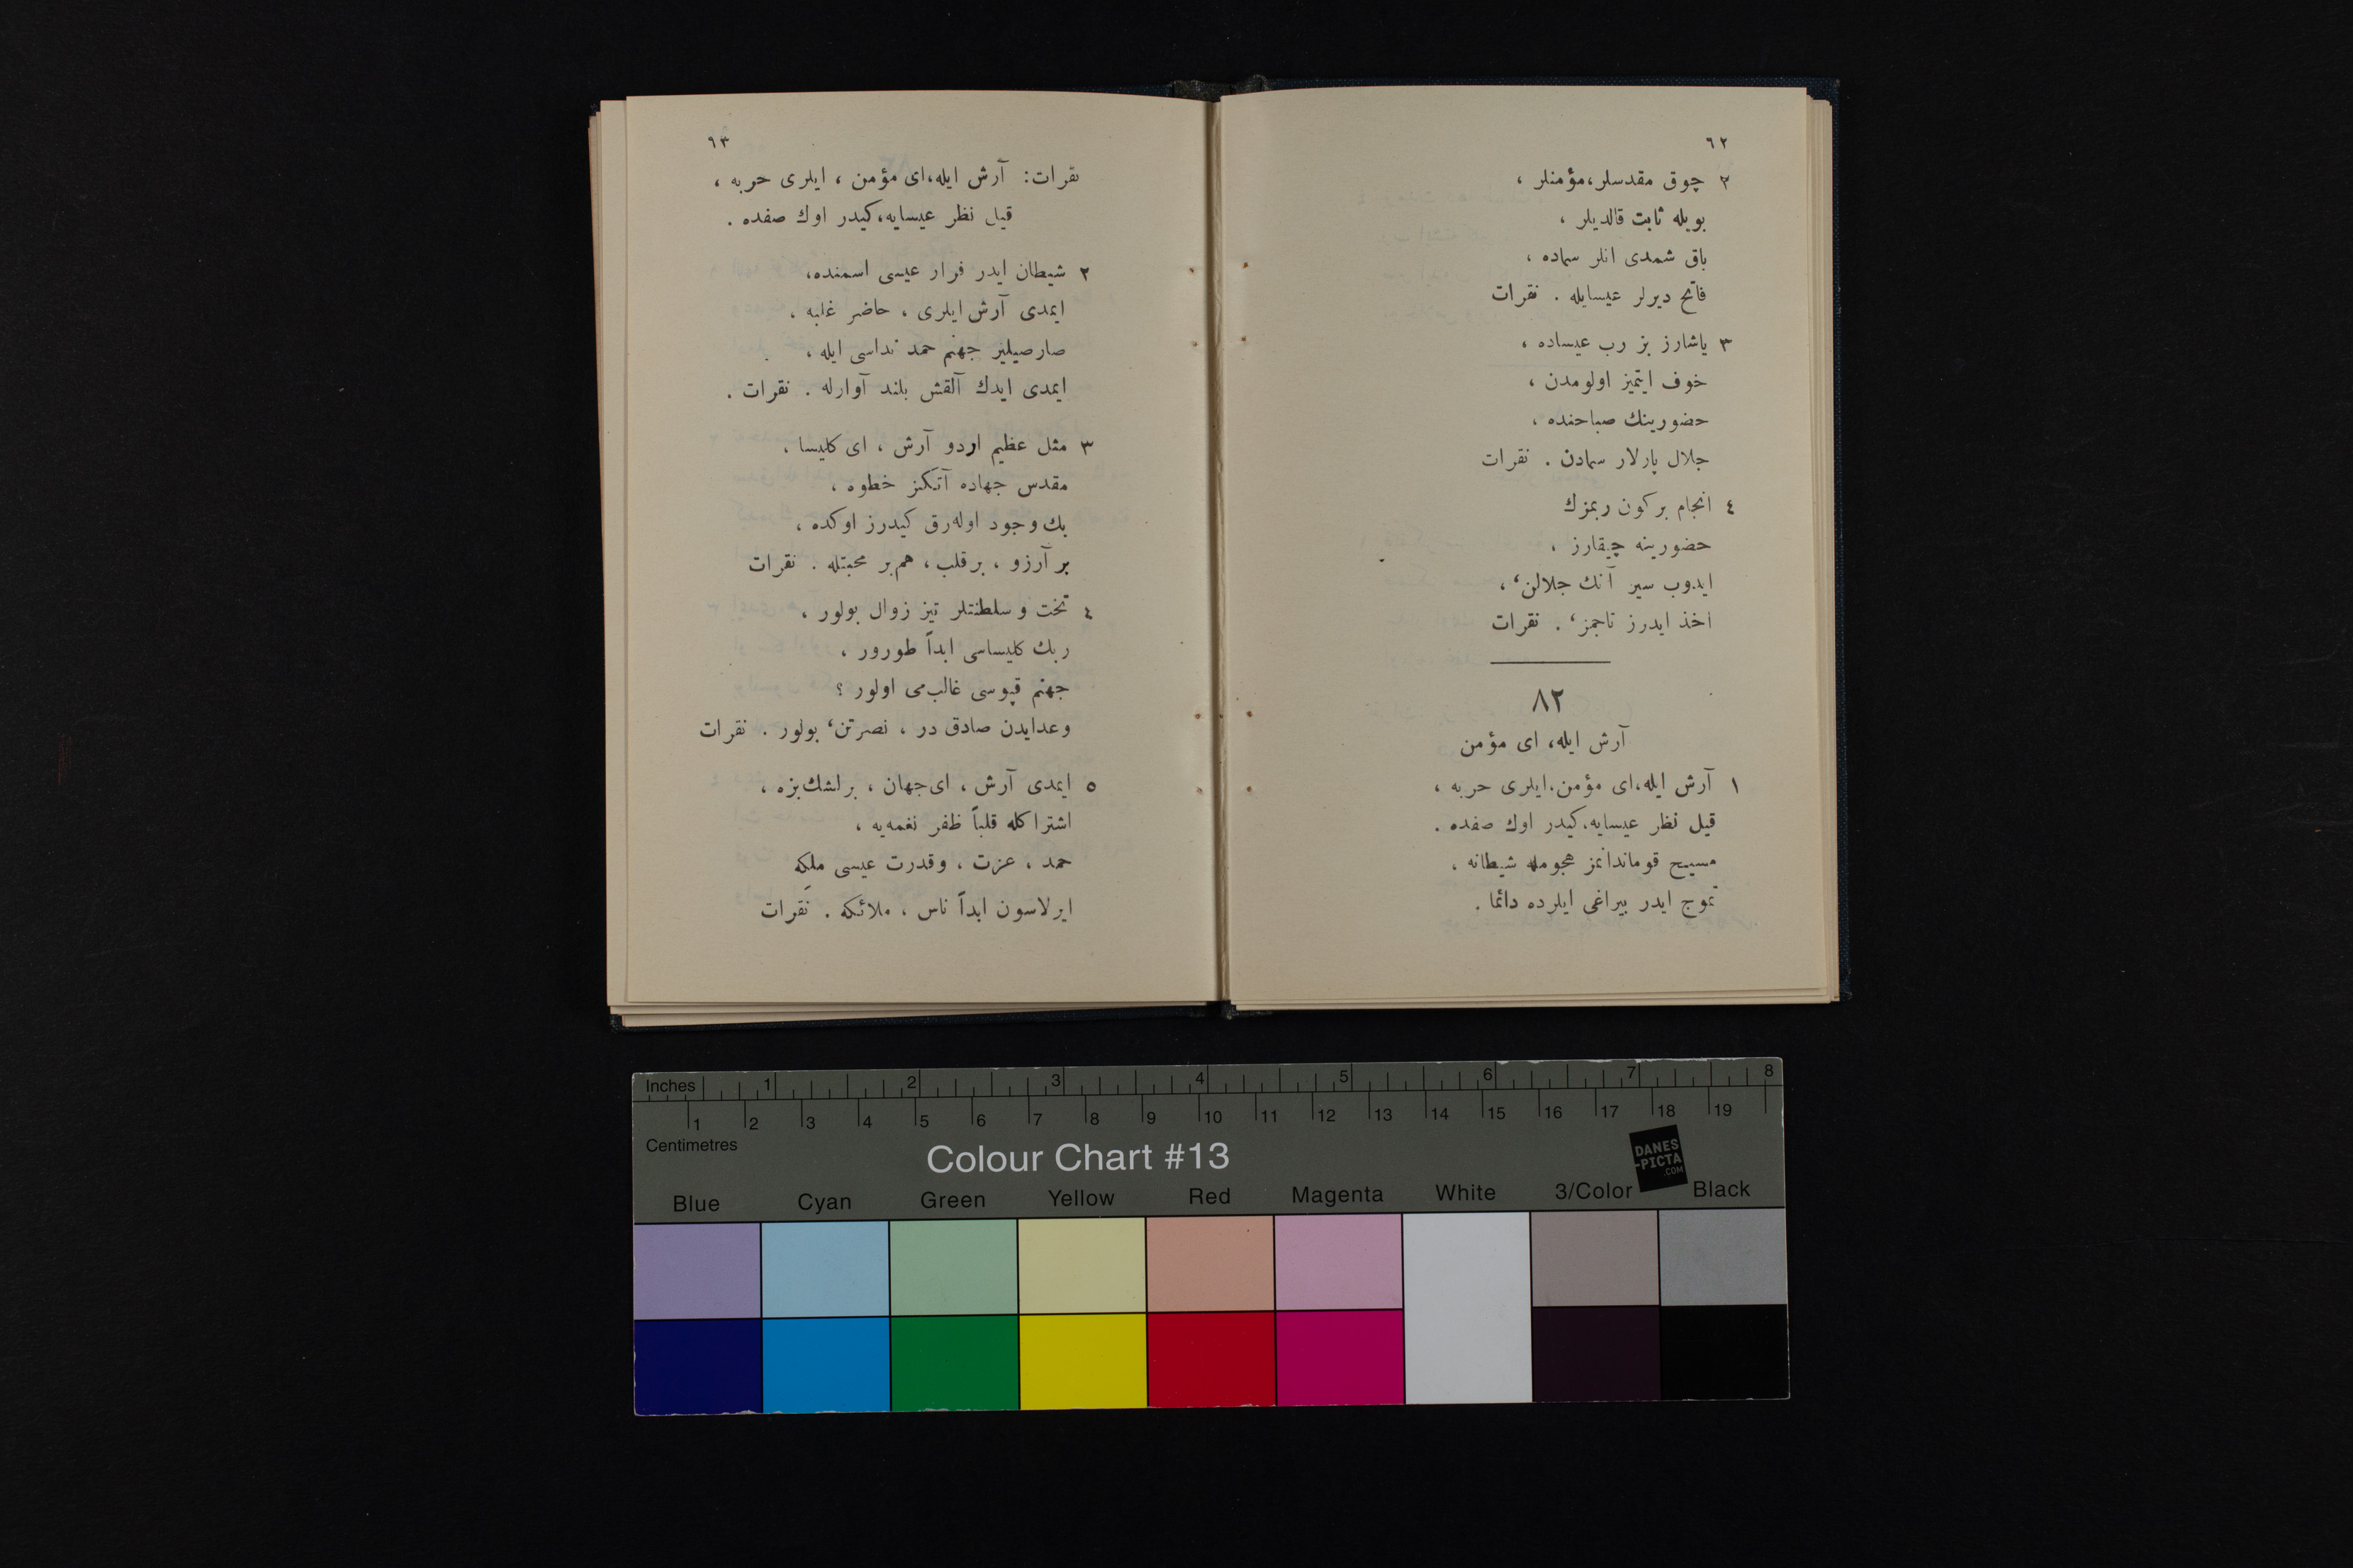 ٦٢
٢ چوق مقدسلر،مؤمنلر ،
بویله ثابت قالدیلر ،
باق شمدی انلر سماده ،
فاتح دیرلر عیسایله . نقرات
٣ یاشارز بز رب عیساده ،
خوف ایتمیز اولومدن ،
حضورینك صباحنده ،
جلال پارلار سمادن . نقرات
٤ انجام بر كون ربمزك
حضورینه چیقارز ،
ایدوب سیر آنك جلالن‘ ،
اخذ ایدرز تاجمز‘ . نقرات
٨٢
آرش ایله، ای مؤمن
١ آرش ایله،ای مؤمن،ایلری حربه ،
قیل نظر عیسایه،كیدر اوك صفده .
مسیح قوماندانمز هجومله شیطانه ،
تموج ایدر بیراغی ایلرده دائما .
٦٣
نقرات: آرش ایله،ای مؤمن ، ایلری حربه ،
قیل نظر عیسایه،كیدر اوك صفده .
٢ شیطان ایدر فرار عیسی اسمنده،
ایمدی آرش ایلری ، حاضر غلبه ،
صارصیلیر جهنم حمد نداسی ایله ،
ایمدی ایدك آلقش بلند آوارله . نقرات .
٣ مثل عظیم اردو آرش ، ای كلیسا ،
مقدس جهاده آتكز خطوه ،
بك وجود اولەرق كیدرز اوكده ،
بر آرزو ، بر قلب ، هم بر محبتله . نقرات
٤ تخت و سلطنتلر تیز زوال بولور ،
ربك كلیساسی ابداً طورور ،
جهنم قپوسی غالب‌می اولور ؟
وعدایدن صادق در ، نصرتن‘ بولور . نقرات
٥ ایمدی آرش ، ای جهان ، برلشك بزه ،
اشتراكله قلباً ظفر نغمه‌یه ،
حمد ، عزت ، وقدرت عیسی ملكه
ایرلاسون ابداً ناس ، ملائكه . نقرات
Inches 1 2 3 4 5 6 7 8
1 2 3 4 5 6 7 8 9 10 11 12 13 14 15 16 17 18 19
Centimetres
Colour Chart #13
DANES
-PICTA
.COM
Blue Cyan Green Yellow Red Magenta White 3/Color Black